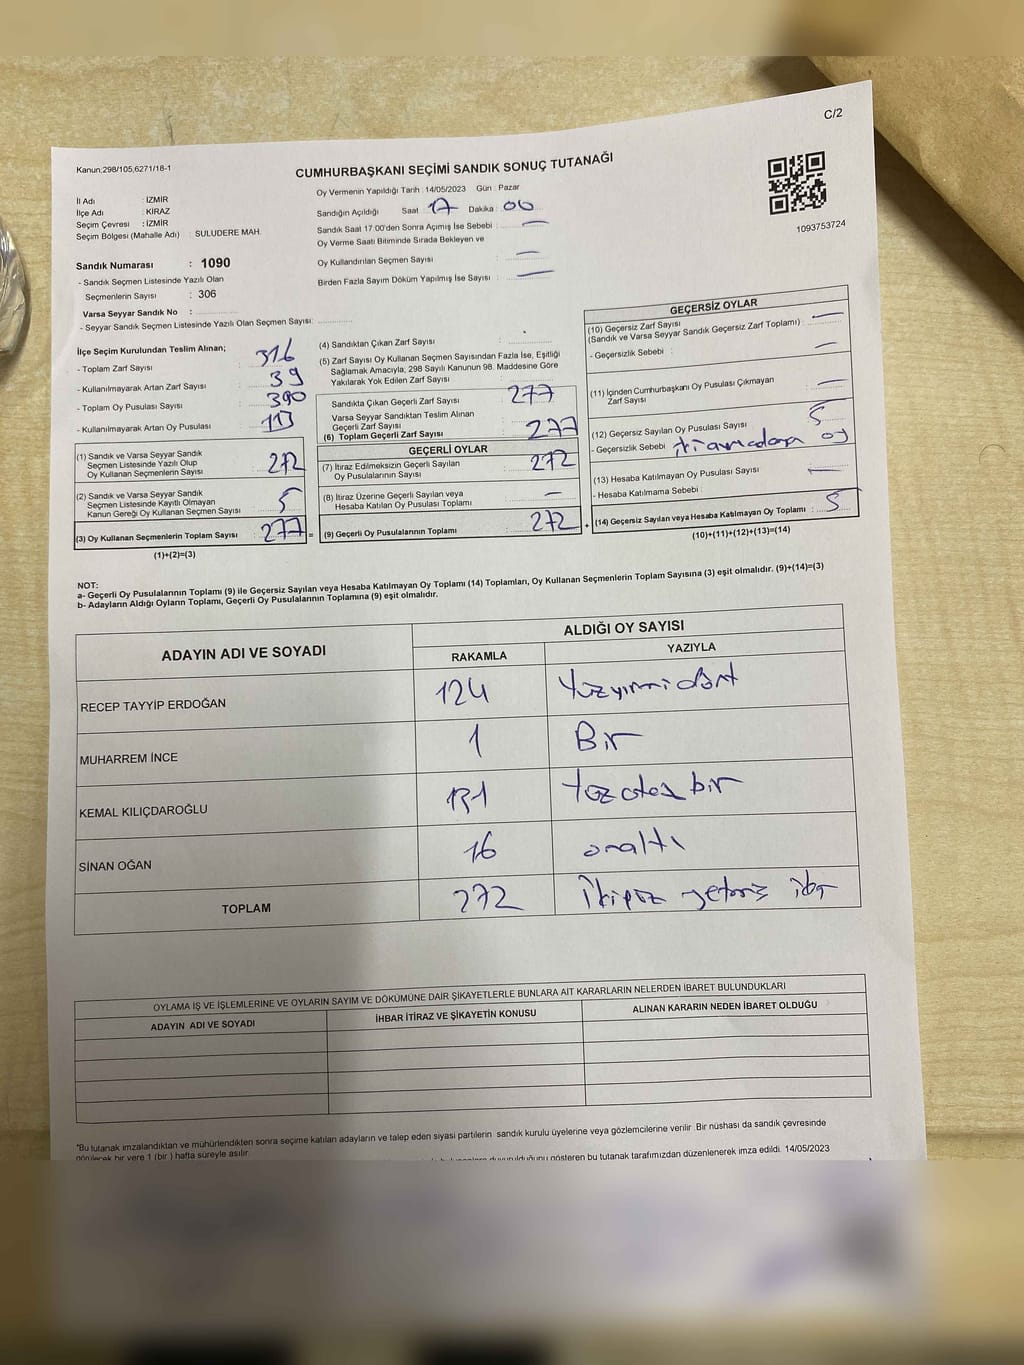 C/2
Kanun;298/105,6271/18-1
CUMHURBAŞKANI SEÇİMİ SANDIK SONUÇ TUTANAĞI
İl Adı : İZMİR
İlçe Adı : KİRAZ
Seçim Çevresi : İZMİR
Seçim Bölgesi (Mahalle Adı) : SULUDERE MAH.
Oy Vermenin Yapıldığı Tarih : 14/05/2023 Gün : Pazar
Sandığın Açıldığı Saat : 17 Dakika : 00
Sandık Saat 17:00'den Sonra Açımış İse Sebebi : —
Oy Verme Saati Bitiminde Sırada Bekleyen ve
Oy Kullandırılan Seçmen Sayısı : —
Birden Fazla Sayım Döküm Yapılmış İse Sayısı : —
1093753724
Sandık Numarası : 1090
- Sandık Seçmen Listesinde Yazılı Olan
Seçmenlerin Sayısı : 306
Varsa Seyyar Sandık No :
- Seyyar Sandık Seçmen Listesinde Yazılı Olan Seçmen Sayısı:
İlçe Seçim Kurulundan Teslim Alınan;
- Toplam Zarf Sayısı : 316
- Kullanılmayarak Artan Zarf Sayısı : 39
- Toplam Oy Pusulası Sayısı : 390
- Kullanılmayarak Artan Oy Pusulası : 113
(1) Sandık ve Varsa Seyyar Sandık
Seçmen Listesinde Yazılı Olup
Oy Kullanan Seçmenlerin Sayısı : 272
(2) Sandık ve Varsa Seyyar Sandık
Seçmen Listesinde Kayıtlı Olmayan
Kanun Gereği Oy Kullanan Seçmen Sayısı : 5
(3) Oy Kullanan Seçmenlerin Toplam Sayısı : 277 =
(1)+(2)=(3)
(4) Sandıktan Çıkan Zarf Sayısı :
(5) Zarf Sayısı Oy Kullanan Seçmen Sayısından Fazla İse, Eşitliği
Sağlamak Amacıyla; 298 Sayılı Kanunun 98. Maddesine Göre
Yakılarak Yok Edilen Zarf Sayısı :
Sandıkta Çıkan Geçerli Zarf Sayısı : 277
Varsa Seyyar Sandıktan Teslim Alınan
Geçerli Zarf Sayısı :
(6) Toplam Geçerli Zarf Sayısı : 277
GEÇERLİ OYLAR
(7) İtiraz Edilmeksizin Geçerli Sayılan
Oy Pusulalarının Sayısı : 272
(8) İtiraz Üzerine Geçerli Sayılan veya
Hesaba Katılan Oy Pusulası Toplamı : —
(9) Geçerli Oy Pusulalarının Toplamı : 272 +
GEÇERSİZ OYLAR
(10) Geçersiz Zarf Sayısı
(Sandık ve Varsa Seyyar Sandık Geçersiz Zarf Toplamı) : —
- Geçersizlik Sebebi : —
(11) İçinden Cumhurbaşkanı Oy Pusulası Çıkmayan
Zarf Sayısı : —
(12) Geçersiz Sayılan Oy Pusulası Sayısı : 5
- Geçersizlik Sebebi : oy
(13) Hesaba Katılmayan Oy Pusulası Sayısı : —
- Hesaba Katılmama Sebebi :
(14) Geçersiz Sayılan veya Hesaba Katılmayan Oy Toplamı : 5
(10)+(11)+(12)+(13)=(14)
NOT:
a- Geçerli Oy Pusulalarının Toplamı (9) ile Geçersiz Sayılan veya Hesaba Katılmayan Oy Toplamı (14) Toplamları, Oy Kullanan Seçmenlerin Toplam Sayısına (3) eşit olmalıdır. (9)+(14)=(3)
b- Adayların Aldığı Oyların Toplamı, Geçerli Oy Pusulalarının Toplamına (9) eşit olmalıdır.
ADAYIN ADI VE SOYADI
ALDIĞI OY SAYISI
RAKAMLA YAZIYLA
RECEP TAYYİP ERDOĞAN 124 Yüzyirmi dört
MUHARREM İNCE 1 Bir
KEMAL KILIÇDAROĞLU 131 Yüz otuz bir
SİNAN OĞAN 16 onaltı
TOPLAM 272 İkiyüz yetmiş iki
OYLAMA İŞ VE İŞLEMLERİNE VE OYLARIN SAYIM VE DÖKÜMÜNE DAİR ŞİKAYETLERLE BUNLARA AİT KARARLARIN NELERDEN İBARET BULUNDUKLARI
ADAYIN ADI VE SOYADI İHBAR İTİRAZ VE ŞİKAYETİN KONUSU ALINAN KARARIN NEDEN İBARET OLDUĞU
"Bu tutanak imzalandıktan ve mühürlendikten sonra seçime katılan adayların ve talep eden siyasi partilerin sandık kurulu üyelerine veya gözlemcilerine verilir Bir nüshası da sandık çevresinde
görülecek bir yere 1 (bir ) hafta süreyle asılır.
duyurulduğunu gösteren bu tutanak tarafımızdan düzenlenerek imza edildi. 14/05/2023